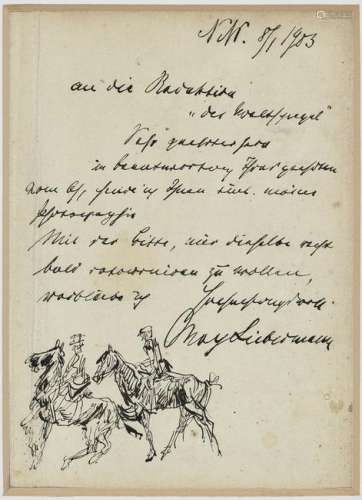 N.W. 8/1 1903
an die Redaktion
"der Weltspiegel"
Sehr geehrter Herr
in Beantwortung Ihres geehrten
vom 6/1 sende ich Ihnen meine
Photographie
Mit der Bitte, mir dieselbe recht
bald retournieren zu wollen,
verbleibe ich
Hochachtungsvoll
Max Liebermann